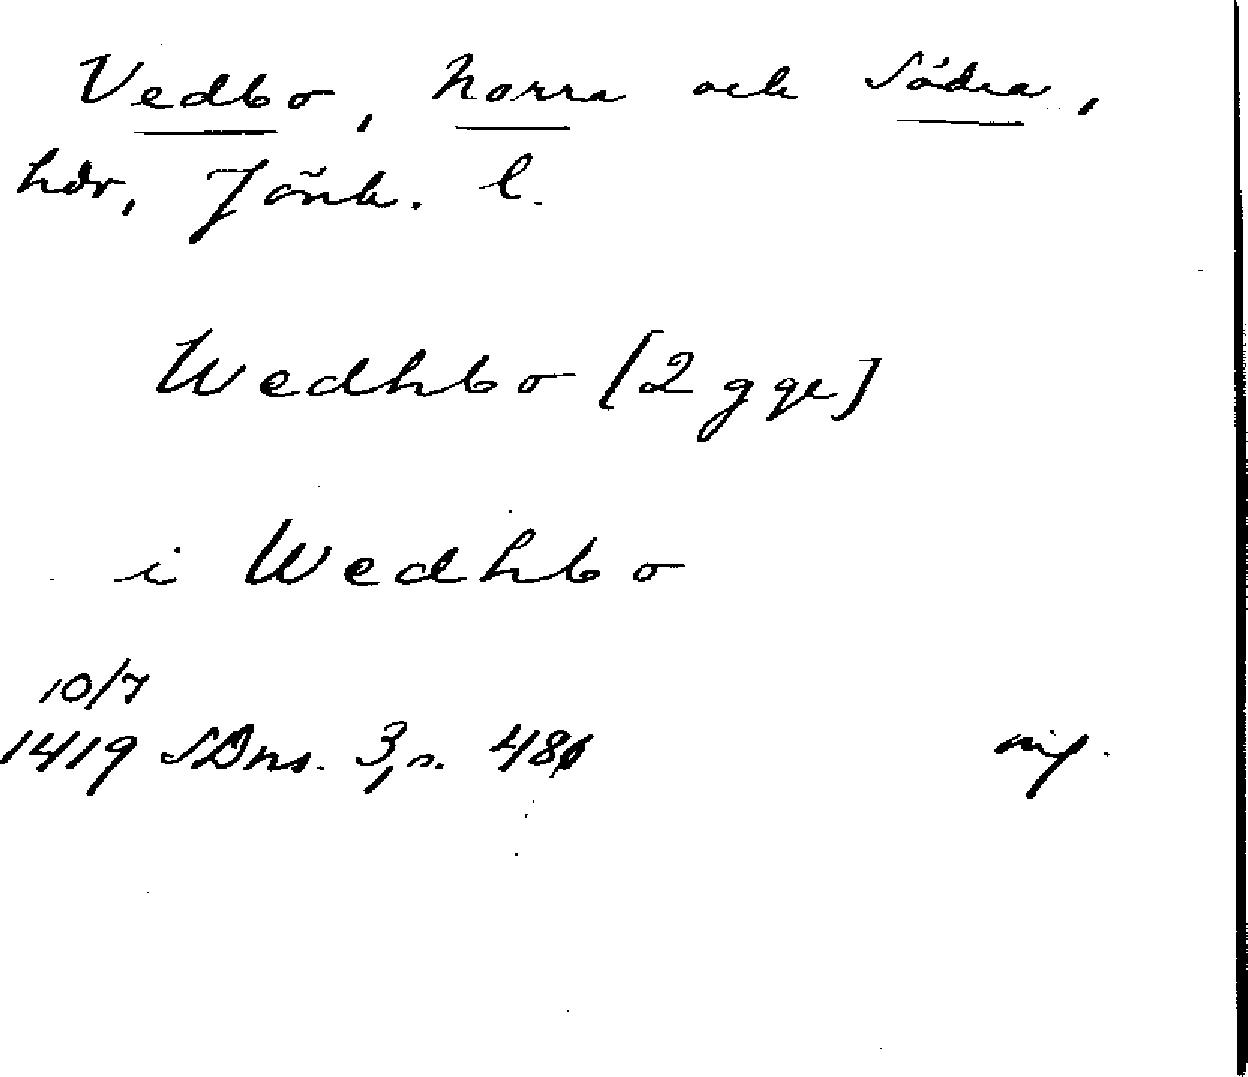 Vedbo, Norra och Södra,
hdr, Jönk. l.
Wedhbo [2 ggr]
i Wedhbo
10/7
1419 SDns. 3, s. 480